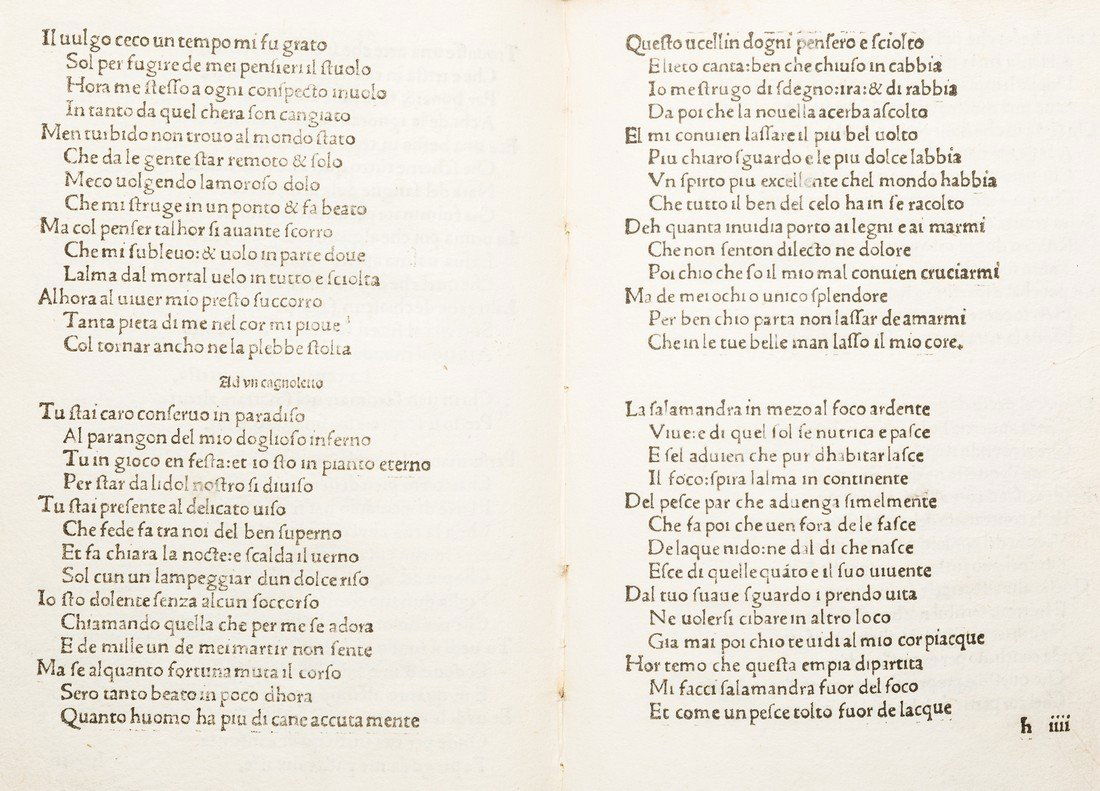 Il uulgo ceco un tempo mi fu grato
Sol per fugire de mei pensieri il stuolo
Hora me stesso a ogni conspecto inuolo
In tanto da quel chera son cangiato
Men turbido non trouo al mondo stato
Che da le gente star remoto & solo
Meco uolgendo lamoroso dolo
Che mi struge in un ponto & fa beato
Ma col penser talhor si auante scorro
Che mi subleuo:& uolo in parte doue
Lalma dal mortal uelo in tutto e sciolta
Alhora al uiuer mio presto succorro
Tanta pieta di me nel cor mi pioue
Col tornar ancho ne la plebbe stolta
Ad vn cagnoletto
Tu stai caro conseruo in paradiso
Al parangon del mio doglioso inferno
Tu in gioco en festa:et io sto in pianto eterno
Per star da lidol nostro si diuiso
Tu stai presente al delicato uiso
Che fede fa tra noi del ben superno
Et fa chiara la nocte:e scalda il uerno
Sol cun un lampeggiar dun dolce riso
Io sto dolente senza alcun soccorso
Chiamando quella che per me se adora
E de mille un de mei martir non sente
Ma se alquanto fortuna muta il corso
Sero tanto beato in poco dhora
Quanto huomo ha piu di cane accuta mente
Questo ucellin dogni pensero e sciolto
E lieto canta:ben che chiuso in cabbia
Io me strugo di sdegno:ira:& di rabbia
Da poi che la nouella acerba ascolto
El mi conuien lassare il piu bel uolto
Piu chiaro sguardo e le piu dolce labbia
Vn spirto piu excellente chel mondo habbia
Che tutto il ben del celo ha in se racolto
Deh quanta inuidia porto ai legni e ai marmi
Che non senton dilecto ne dolore
Poi chio che so il mio mal conuien cruciarmi
Ma de mei ochi o unico splendore
Per ben chio parta non lassar de amarmi
Che in le tue belle man lasso il mio core.
La salamandra in mezo al foco ardente
Viue:e di quel sol se nutrica e pasce
E sel aduien che pur dhabitar lasce
Il foco:spira lalma in continente
Del pesce par che aduenga simelmente
Che fa poi che uen fora de le fasce
De laque nido:ne dal di che nasce
Esce di quelle quãto e il suo uiuente
Dal tuo suaue sguardo i prendo uita
Ne uolersi cibare in altro loco
Gia mai poi chio te uidi al mio cor piacque
Hor temo che questa empia dipartita
Mi facci salamandra fuor del foco
Et come un pesce tolto fuor de lacque
h iiii